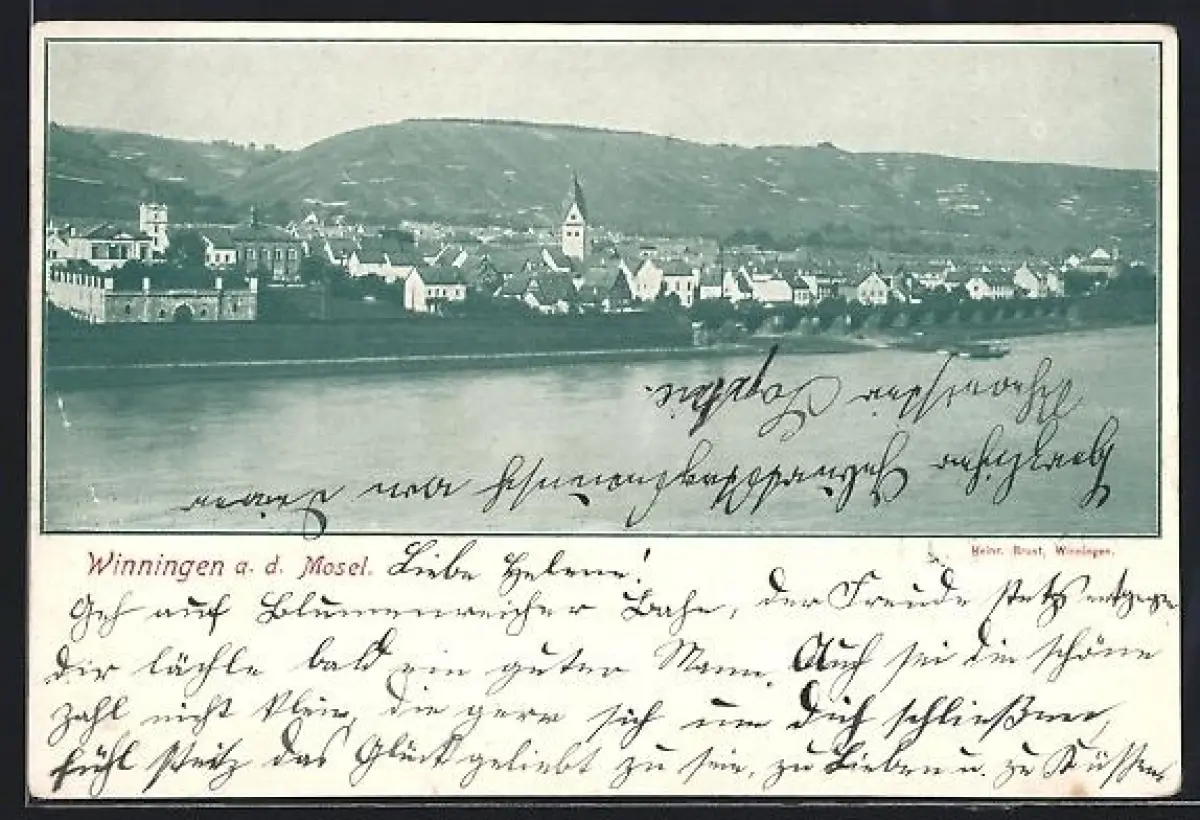 Winningen a. d. Mosel. Liebe Helene!
Heinr. Brust, Winningen.
Geh auf Blumenreicher Bahn, der Freude stets entgegen
dir lächle bald ein guter Mann. Auch sei die schöne
zahl nicht klein, die gern sich um dich schließen,
fühl stetz das Glück geliebt zu sein, zu Lieben u. zu Küssen
Herzlichen Geburtstagswunsch von Deiner
Sophie.